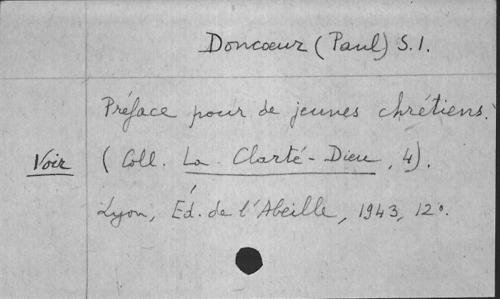 Doncoeur (Paul) S.I.
Préface pour de jeunes chrétiens.
Voir (Coll. La Clarté-Dieu, 4).
Lyon, Éd. de l'Abeille, 1943, 12°.